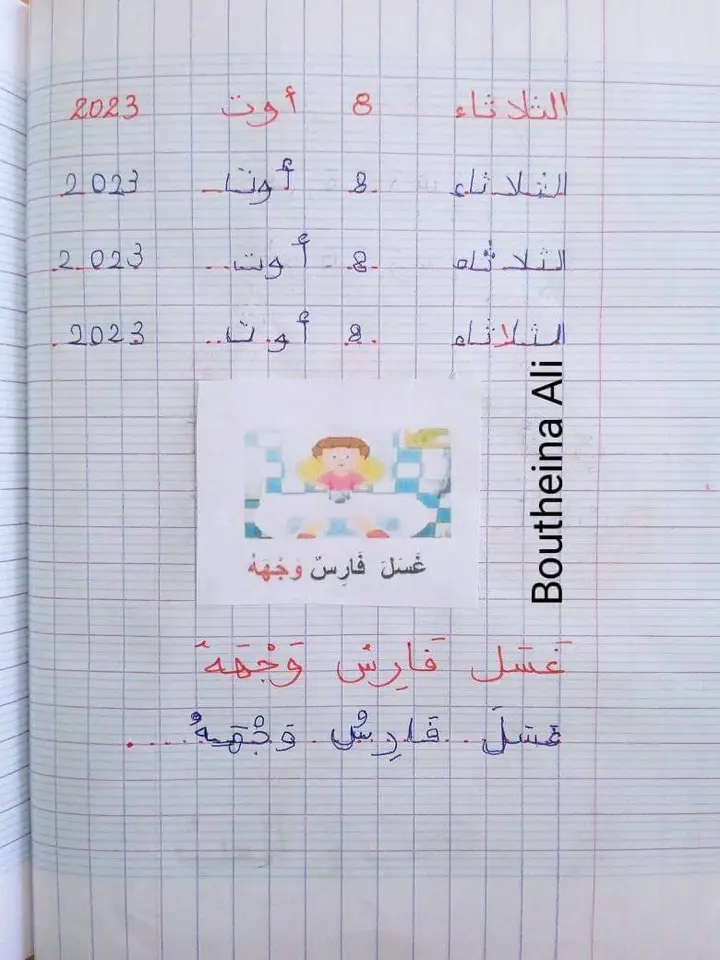 الثلاثاء 8 أوت 2023
الثلاثاء 8 أوت 2023
الثلاثاء 8 أوت 2023
الثلاثاء 8 أوت 2023
غَسَلَ فَارِسٌ وَجْهَهُ
غَسَل فَارِسٌ وَجْهَهُ
غَسَلَ فَارِسٌ وَجْهَهُ
Boutheina Ali